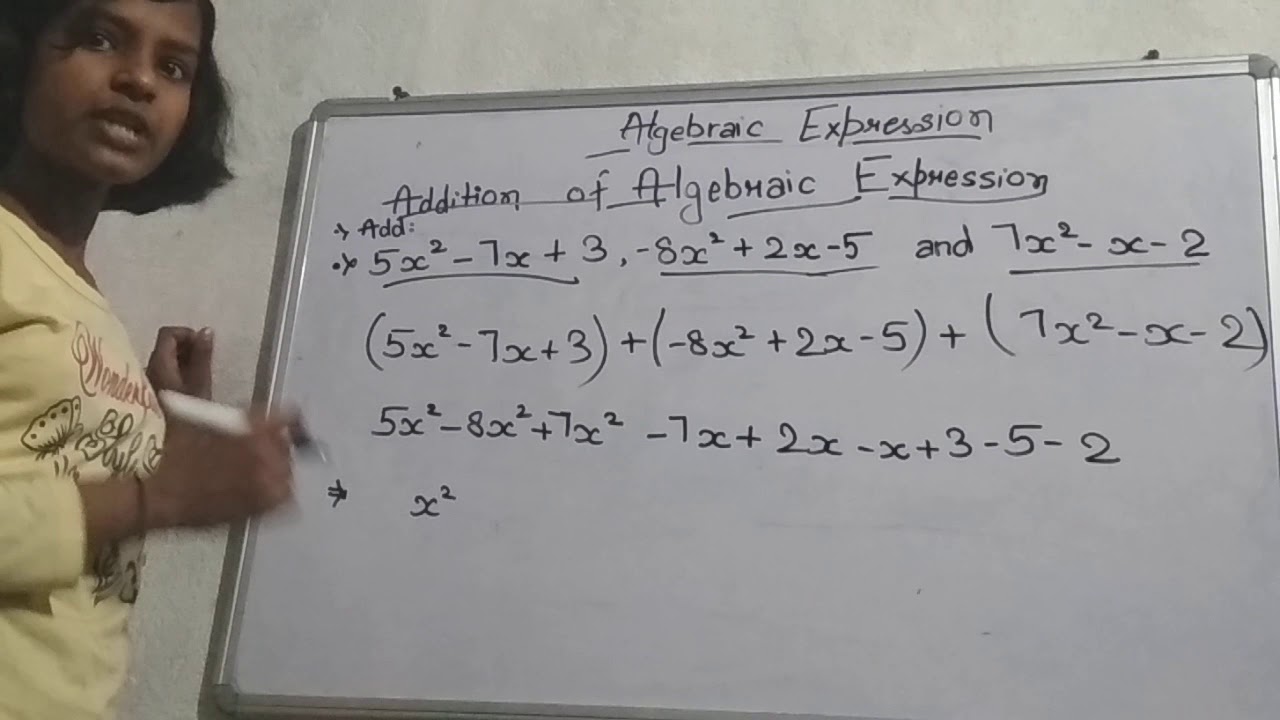 Algebraic Expression
Addition of Algebraic Expression
Add:
5x² - 7x + 3, -8x² + 2x - 5 and 7x² - x - 2
(5x² - 7x + 3) + (-8x² + 2x - 5) + (7x² - x - 2)
5x² - 8x² + 7x² - 7x + 2x - x + 3 - 5 - 2
⇒ x²
Wonderful